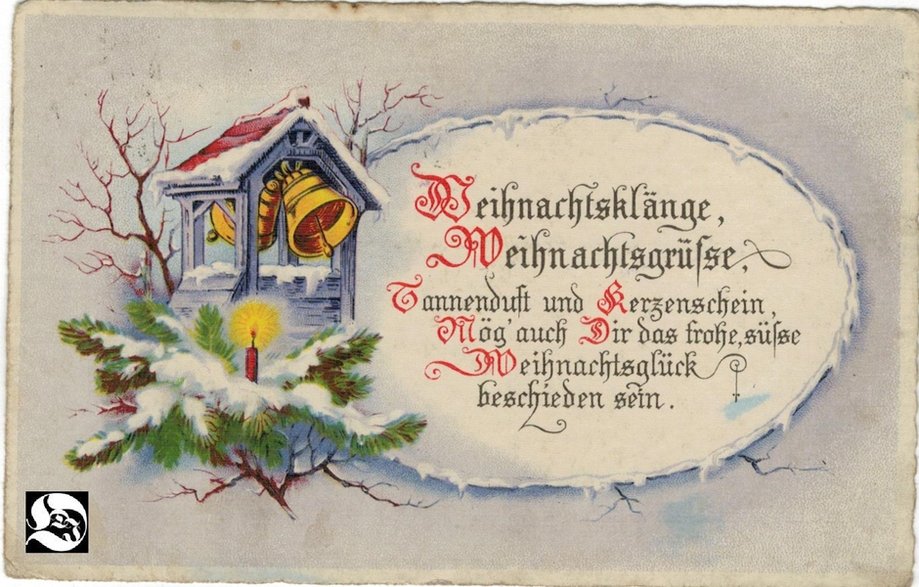 Weihnachtsklänge,
Weihnachtsgrüsse,
Tannenduft und Kerzenschein,
Mög' auch Dir das frohe, süsse
Weihnachtsglück
beschieden sein.